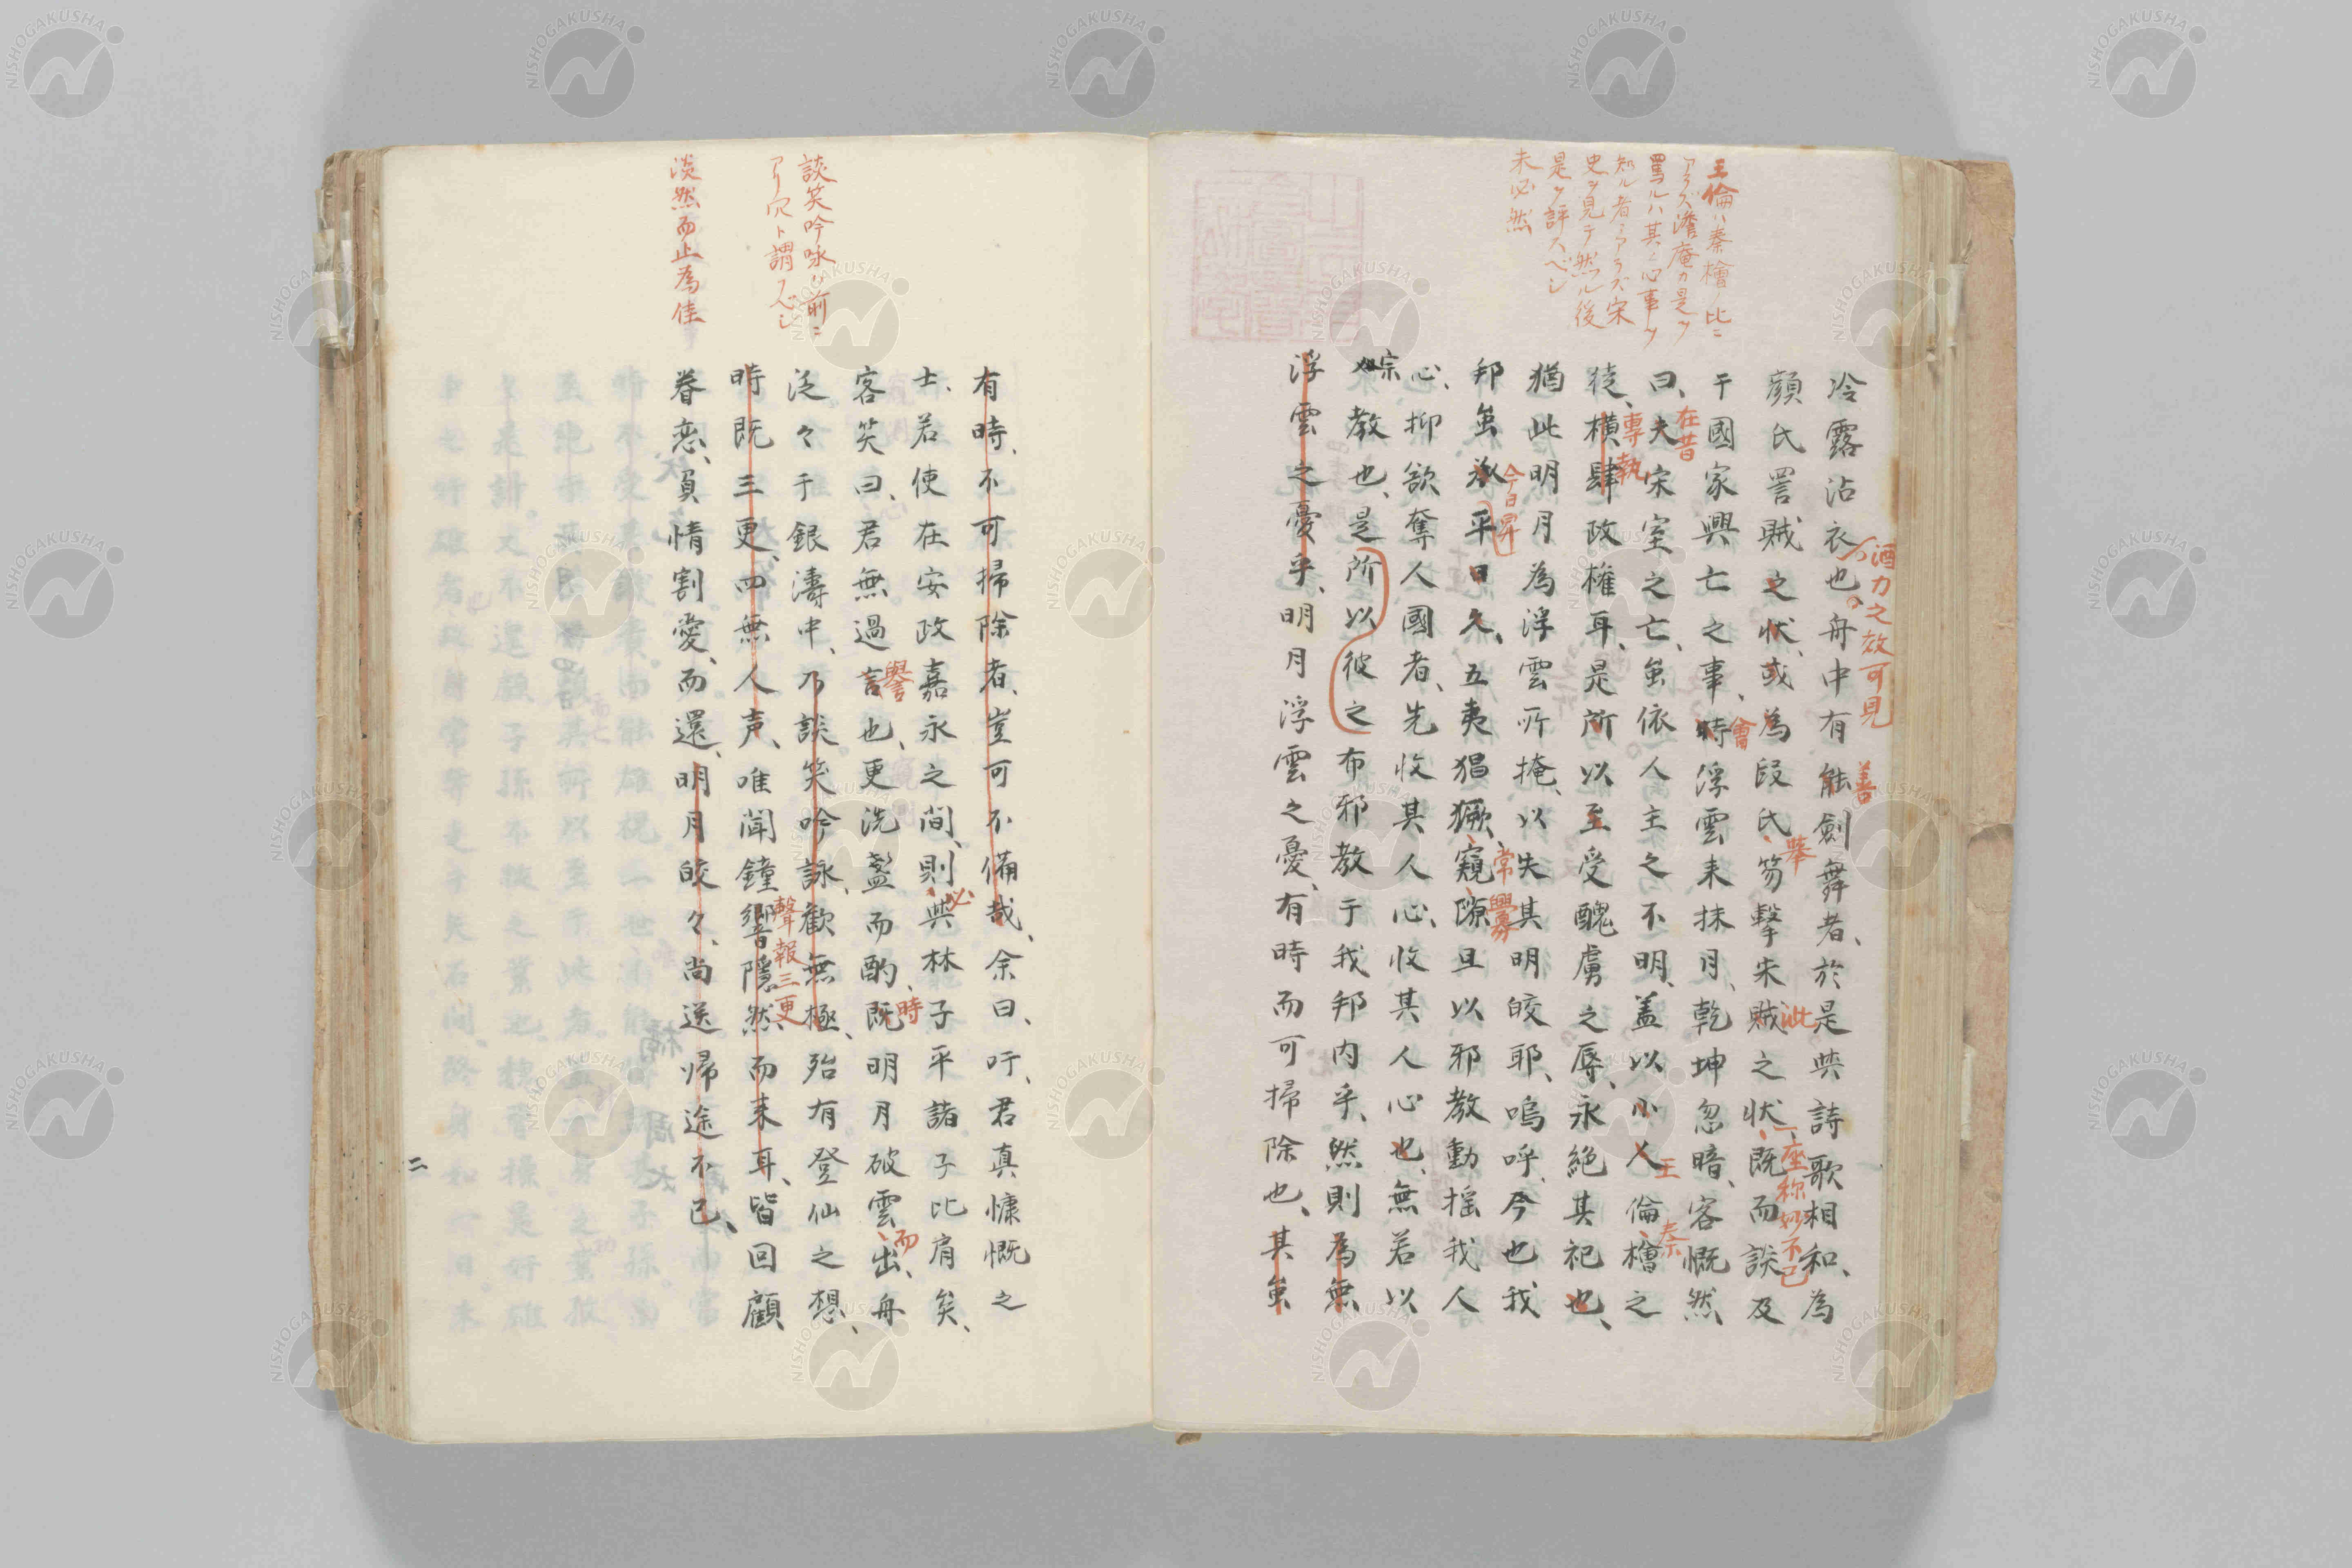 王倫ハ秦檜ノ比ニ
アラズ澹庵カ是ヲ
罵ルハ其心事ヲ
知ル者ニアラズ宋
史ヲ見テ然ル後
是ヲ評スベシ
未必然
酒力之效可見
善
冷露沾衣也舟中有能劍舞者、於是与詩歌相和、為
擧
泚
一座称妙不已
顔氏詈賊之状、或為段氏笏擊朱賊之状、既而談及
會
于國家興亡之事、時浮雲来抹月、乾坤忽暗、客慨然
在昔
王
秦
曰、夫宋室之亡、虽依人主之不明、盖以小人倫檜之
專執
徒、横肆政権耳、是所以至受醜虜之辱、永絕其祀也、
猶此明月為浮雲所掩、以失其明皎耶、嗚呼、今也我
今日昇
常興募
邦虽承平日久、五夷猖獗、窺隙且以邪教動揺我人
心、抑欲奪人國者、先收其人心、收其人心也、無若以
宗教也、是所以彼之布邪教于我邦内乎、然則為無
浮雲之憂乎、明月浮雲之憂、有時而可掃除也、其虽
談笑吟咏ハ前ニ
アリ冗ト謂フベシ
淡然而止為佳
有時、不可掃除者、豈可不備哉、余曰、吁、君真慷慨之
必
士、若使在安政嘉永之間、則与林子平諸子比肩矣、
譽
時
而
客笑曰、君無過言也、更洗盞而酌、既明月破雲出、舟
泛々于銀濤中、乃談笑吟詠、歓無極、殆有登仙之想、
聲報三更
時既三更、四無人声、唯聞鐘響隱然而来耳、皆回顧
眷恋、負情割愛、而還、明月皎々、尚送帰途不已、
二